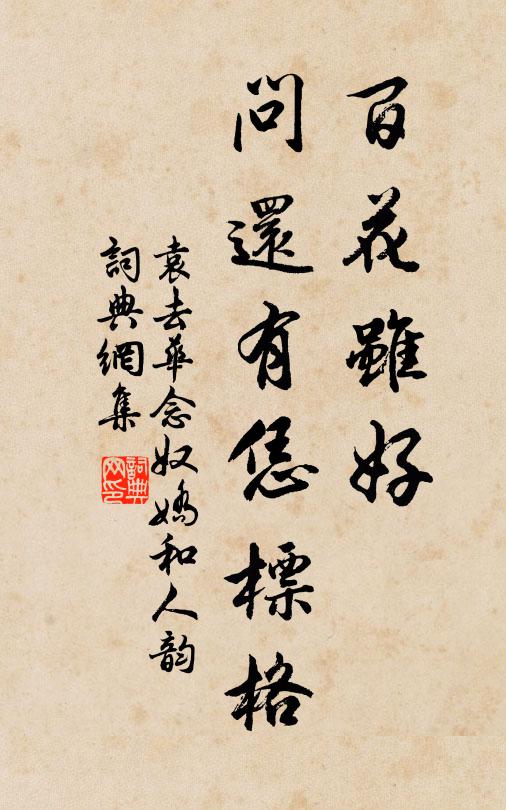 百花雖好
問還有恁標格
袁去華念奴嬌和人韵
詞典網集
詞典網印